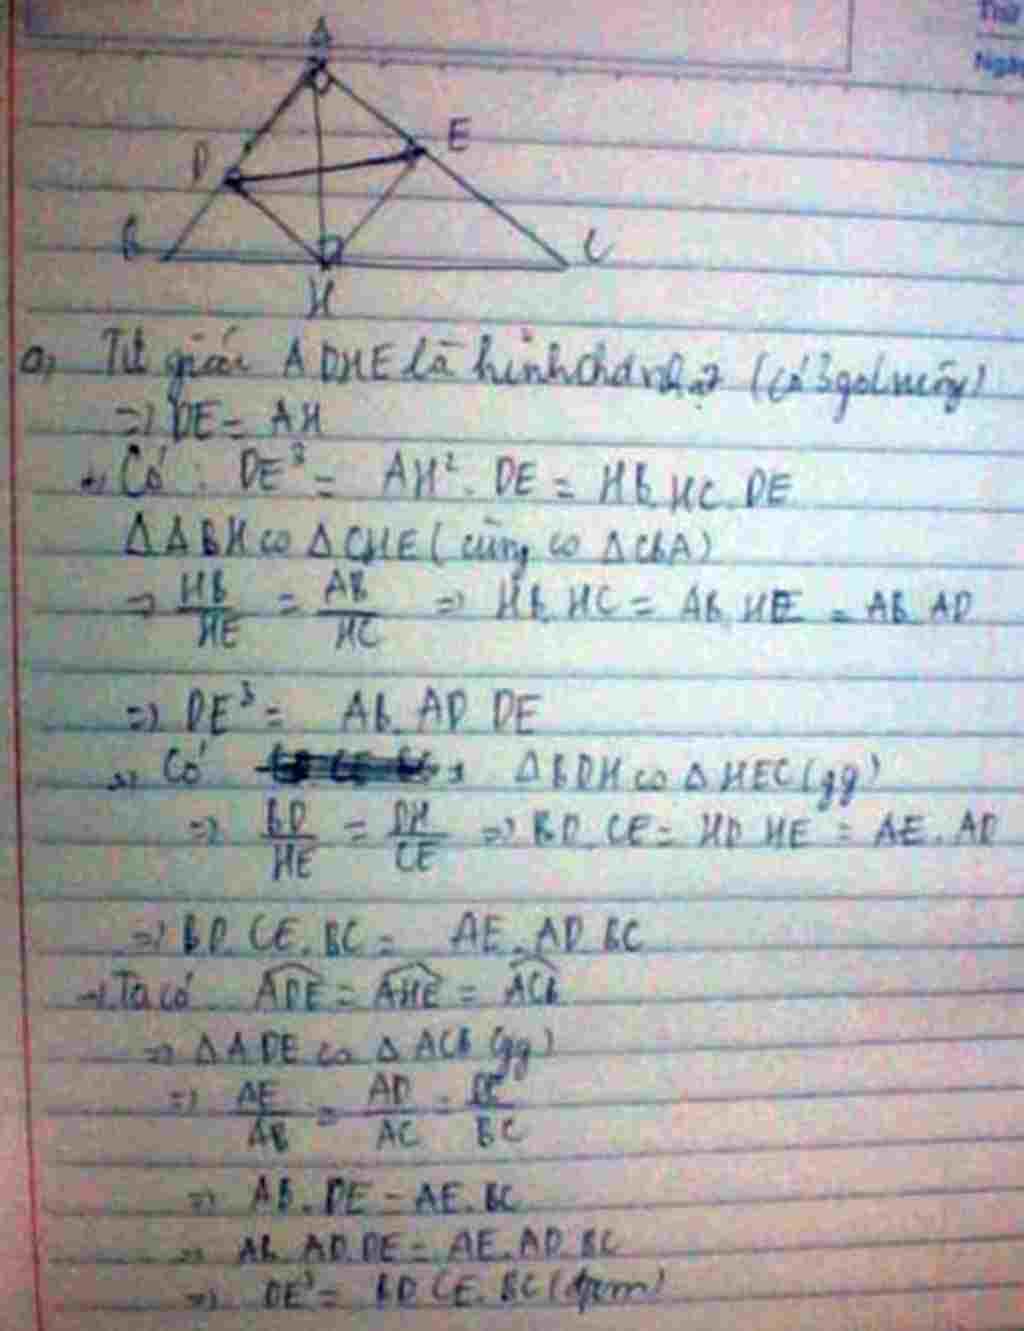 Thứ
Ngày
A
E
D
B
C
H
a) Tứ giác ADHE là hình chữ nhật (có 3 góc vuông)
=> DE = AH
+) Có : DE³ = AH². DE = HB. HC. DE
ΔABH ∽ ΔCHE (cùng ∽ ΔCBA)
=> HB/HE = AB/HC => HB. HC = AB. HE = AB. AD
=> DE³ = AB. AD DE
+) Có ΔBDH ∽ ΔHEC (gg)
=> BD/HE = DH/CE => BD. CE = HD. HE = AE. AD
=> BD. CE. BC = AE. AD BC
+) Ta có ADE^ = AHE^ = ACB^
=> ΔADE ∽ ΔACB (gg)
=> AE/AB = AD/AC = DE/BC
=> AB. DE = AE. BC
=> AB. AD. DE = AE. AD BC
=> DE³ = BD CE. BC (đpcm)